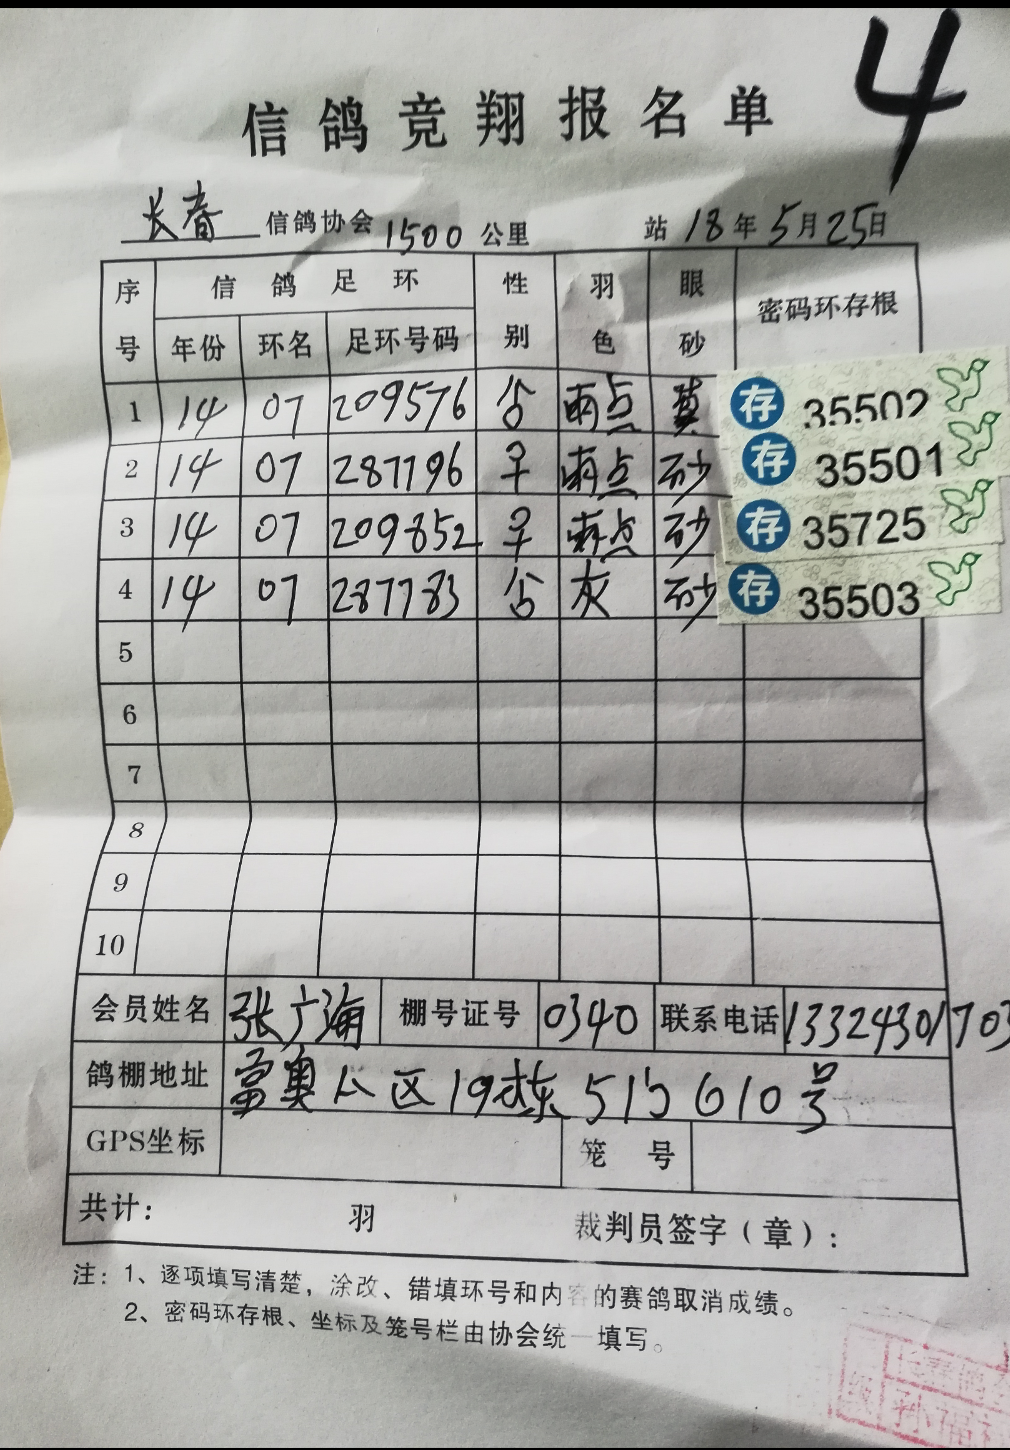 4
信鸽竞翔报名单
长春 信鸽协会 1500 公里 站 18年5月25日
序号 信鸽足环 性别 羽色 眼砂 密码环存根
年份 环名 足环号码
1 14 07 209576 合 雨点 黄 存 35502
2 14 07 287796 早 雨点 砂 存 35501
3 14 07 209852 早 雨点 砂 存 35725
4 14 07 287783 合 灰 砂 存 35503
5
6
7
8
9
10
会员姓名 张广海 棚号证号 0340 联系电话 13324301703
鸽棚地址 富奥小区19栋 515 610号
GPS坐标 笼号
共计: 羽 裁判员签字(章):
注:1、逐项填写清楚,涂改、错填环号和内容的赛鸽取消成绩。
2、密码环存根、坐标及笼号栏由协会统一填写。